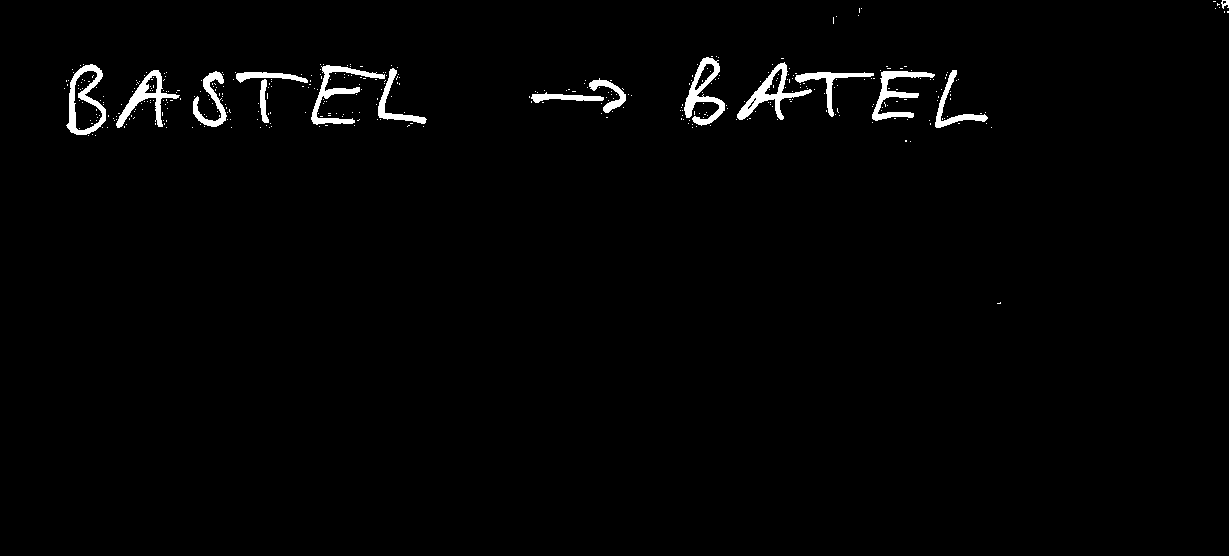 BASTEL → BATEL